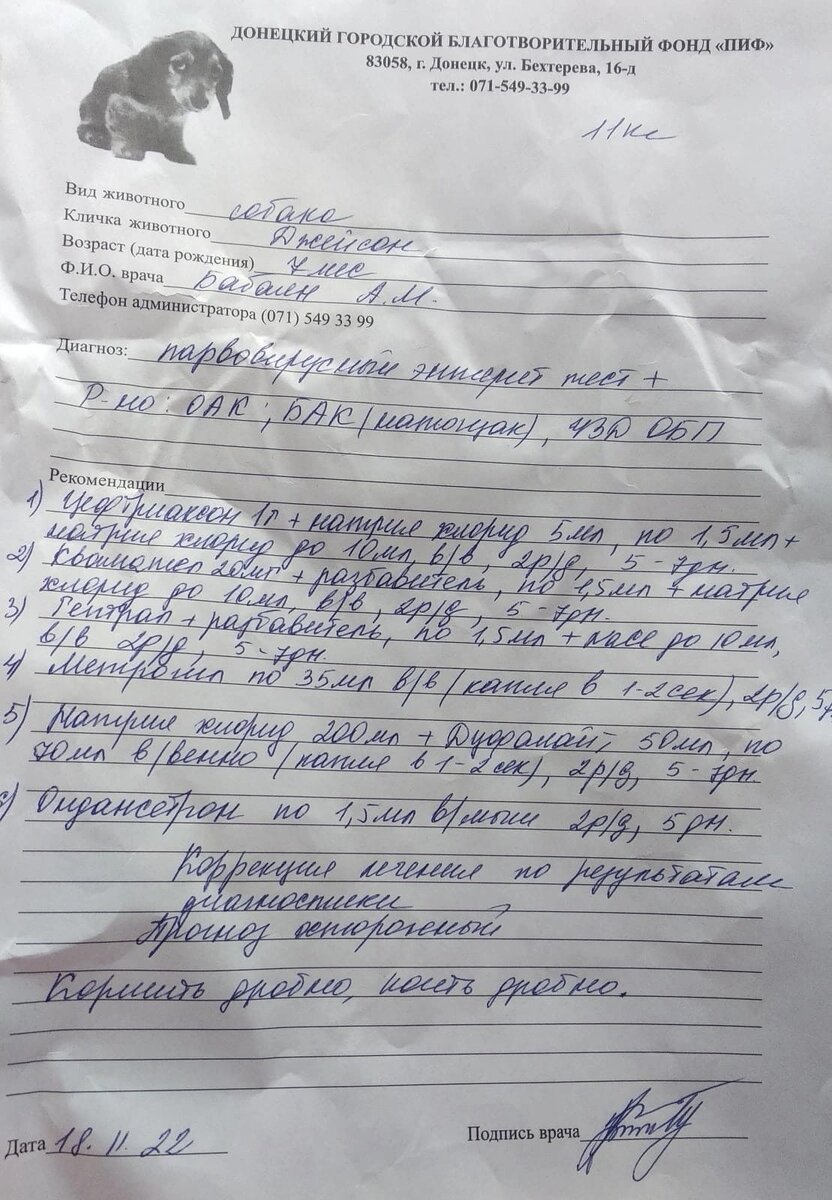 ДОНЕЦКИЙ ГОРОДСКОЙ БЛАГОТВОРИТЕЛЬНЫЙ ФОНД «ПИФ»
83058, г. Донецк, ул. Бехтерева, 16-д
тел.: 071-549-33-99
11кг
Вид животного собака
Кличка животного Джейсон
Возраст (дата рождения) 7 мес
Ф.И.О. врача Бабаян А.М.
Телефон администратора (071) 549 33 99
Диагноз: парвовирусный энтерит тест +
Р-но: ОАК, БАК (натощак), УЗД ОБП
Рекомендации
1) Цефтриаксон 1г + натрия хлорид 5мл, по 1,5мл +
натрия хлорид до 10мл, в/в, 2р/д, 5-7дн.
2) Квамател 20мг + разбавитель, по 1,5мл + натрия
хлорид до 10мл, в/в, 2р/д, 5-7дн.
3) Гептрал + разбавитель, по 1,5мл + до 10мл,
в/в 2р/д, 5-7дн.
4) по 35мл в/в (капля в 1-2сек), 2р/д, 5-7
5) Натрия хлорид 200мл + Дюфалайт 50мл, по
70мл в/венно (капля в 1-2сек), 2р/д, 5-7дн
6) Ондансетрон по 1,5мл в/мыш 2р/д, 5дн.
Коррекция лечения по результатам
диагностики
Прогноз осторожный
Кормить дробно, поить дробно.
Дата 18.11.22
Подпись врача